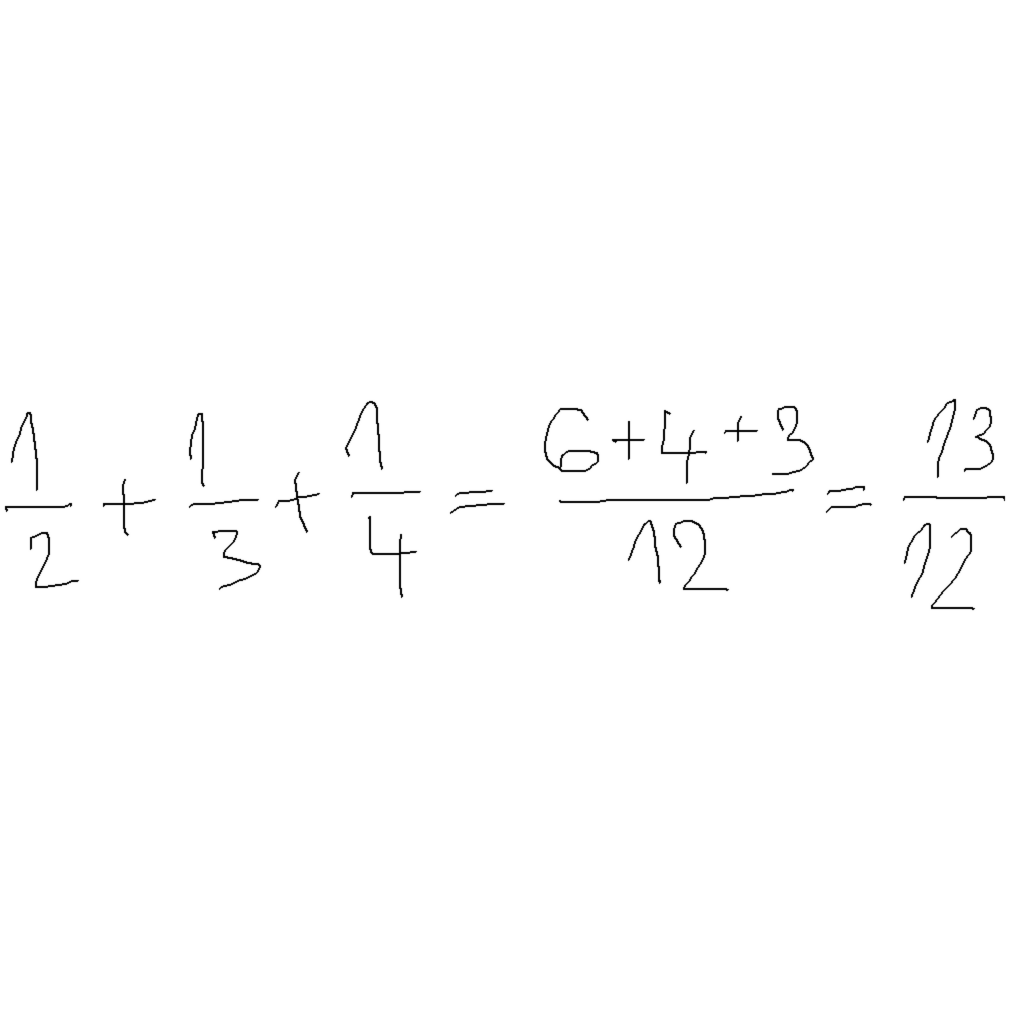 1/2 + 1/3 + 1/4 = (6+4+3)/12 = 13/12